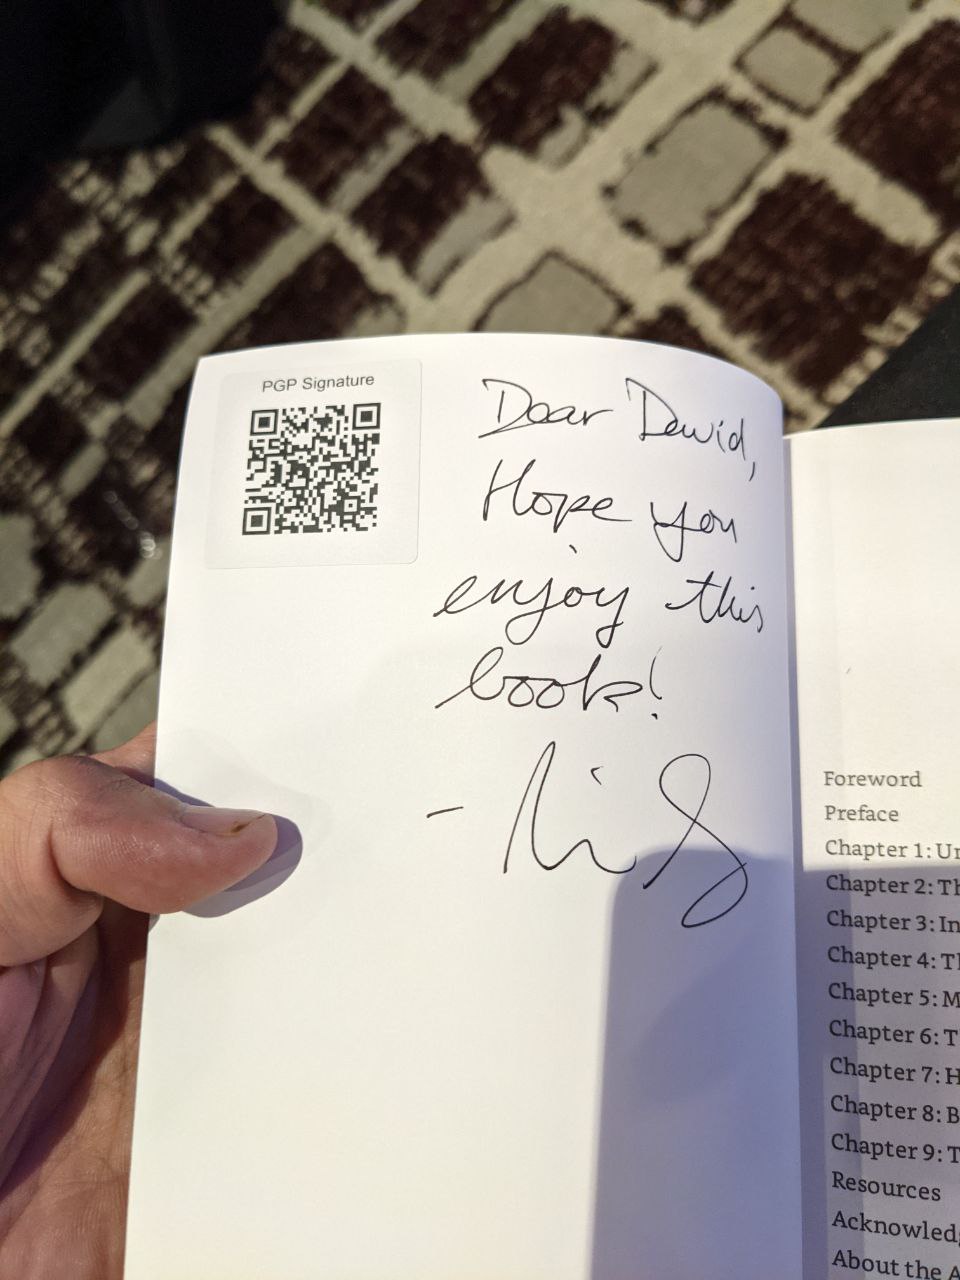 PGP Signature
Dear David,
Hope you
enjoy this
book!
Foreword
Preface
Chapter 1: Un
Chapter 2: Th
Chapter 3: In
Chapter 4: Th
Chapter 5: M
Chapter 6: T
Chapter 7: H
Chapter 8: B
Chapter 9: T
Resources
Acknowledg
About the A